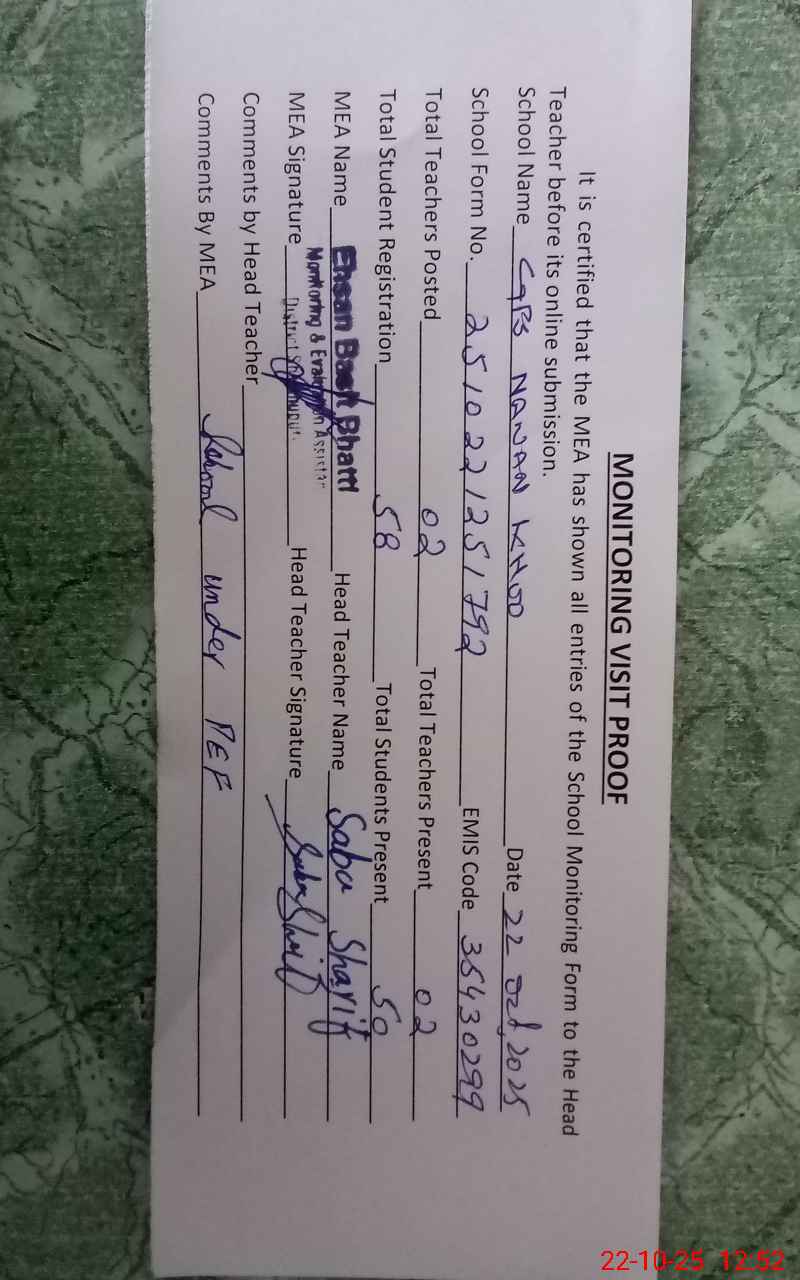 MONITORING VISIT PROOF
It is certified that the MEA has shown all entries of the School Monitoring Form to the Head
Teacher before its online submission.
School Name GPS NANAN KHOO Date 22 Oct, 2025
School Form No. 2510221251792 EMIS Code 35430299
Total Teachers Posted 02 Total Teachers Present 02
Total Student Registration 58 Total Students Present 50
MEA Name Ehsan Basit Bhatti Head Teacher Name Saba Sharif
Monitoring & Evaluation Assistant
MEA Signature District Head Teacher Signature Saba Sharif
Comments by Head Teacher
Comments By MEA School under PEF
22-10-25 12:52